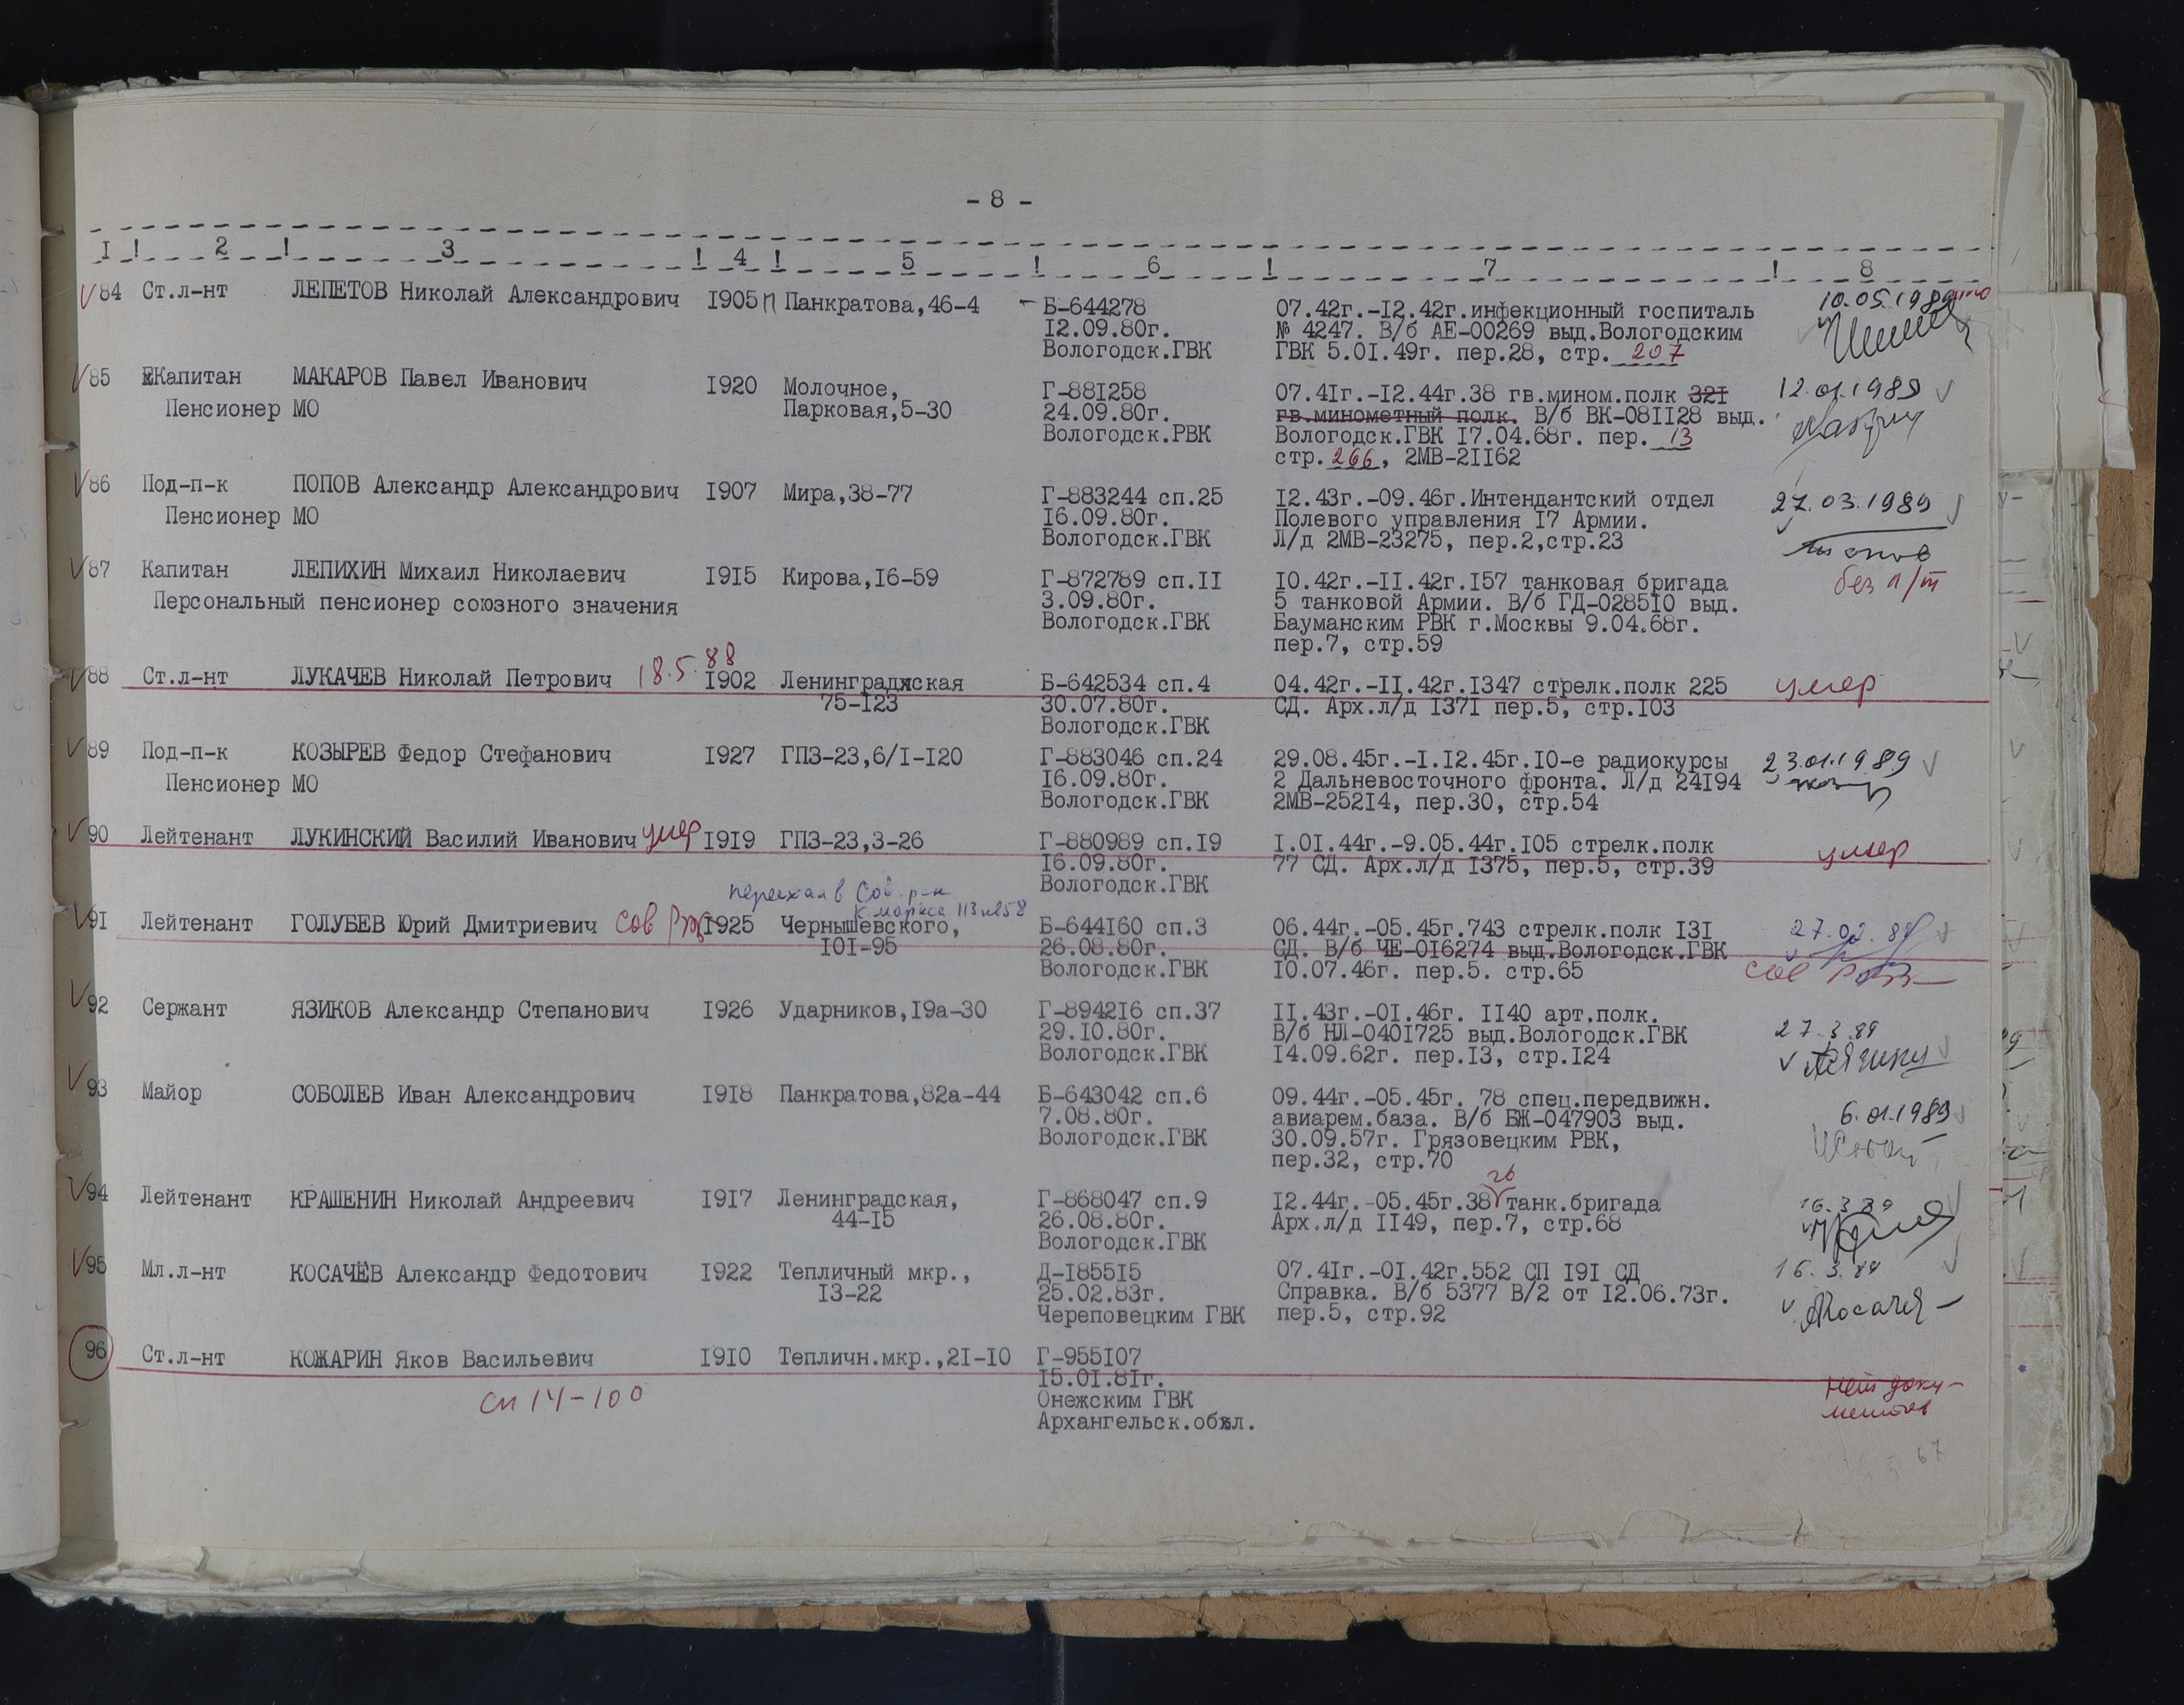 - 8 -
I ! 2 ! 3 ! 4 ! 5 ! 6 ! 7 ! 8
84 Ст.л-нт ЛЕПЕТОВ Николай Александрович 1905 п Панкратова,46-4 Б-644278 07.42г.-12.42г.инфекционный госпиталь 10.05.1989
12.09.80г. № 4247. В/б АЕ-00269 выд.Вологодским
Вологодск.ГВК ГВК 5.01.49г. пер.28, стр. 207
85 Капитан МАКАРОВ Павел Иванович 1920 Молочное, Г-881258 07.41г.-12.44г.38 гв.мином.полк 321 12.01.1989
Пенсионер МО Парковая,5-30 24.09.80г. гв.минометный полк. В/б ВК-081128 выд.
Вологодск.РВК Вологодск.ГВК 17.04.68г. пер. 13
стр. 266, 2МВ-21162
86 Под-п-к ПОПОВ Александр Александрович 1907 Мира,38-77 Г-883244 сп.25 12.43г.-09.46г.Интендантский отдел 27.03.1989
Пенсионер МО 16.09.80г. Полевого управления 17 Армии.
Вологодск.ГВК Л/д 2МВ-23275, пер.2,стр.23
87 Капитан ЛЕПИХИН Михаил Николаевич 1915 Кирова,16-59 Г-872789 сп.11 10.42г.-11.42г.157 танковая бригада без п/т
Персональный пенсионер союзного значения 3.09.80г. 5 танковой Армии. В/б ГД-028510 выд.
Вологодск.ГВК Бауманским РВК г.Москвы 9.04.68г.
пер.7, стр.59
88 Ст.л-нт ЛУКАЧЕВ Николай Петрович 18.5.88 1902 Ленинградхская Б-642534 сп.4 04.42г.-11.42г.1347 стрелк.полк 225 умер
75-123 30.07.80г. СД. Арх.л/д 1371 пер.5, стр.103
Вологодск.ГВК
89 Под-п-к КОЗЫРЕВ Федор Стефанович 1927 ГПЗ-23,6/1-120 Г-883046 сп.24 29.08.45г.-1.12.45г.10-е радиокурсы 23.01.1989
Пенсионер МО 16.09.80г. 2 Дальневосточного фронта. Л/д 24194
Вологодск.ГВК 2МВ-25214, пер.30, стр.54
90 Лейтенант ЛУКИНСКИЙ Василий Иванович умер 1919 ГПЗ-23,3-26 Г-880989 сп.19 1.01.44г.-9.05.44г.105 стрелк.полк умер
16.09.80г. 77 СД. Арх.л/д 1375, пер.5, стр.39
Вологодск.ГВК
переехал в Сов. р-н
К.Маркса 113
91 Лейтенант ГОЛУБЕВ Юрий Дмитриевич Сов 1925 Чернышевского, Б-644160 сп.3 06.44г.-05.45г.743 стрелк.полк 131 27.02.89
101-95 26.08.80г. СД. В/б ЧЕ-016274 выд.Вологодск.ГВК
Вологодск.ГВК 10.07.46г. пер.5. стр.65 сов
92 Сержант ЯЗИКОВ Александр Степанович 1926 Ударников,19а-30 Г-894216 сп.37 11.43г.-01.46г. 1140 арт.полк. 27.3.89
29.10.80г. В/б НЛ-0401725 выд.Вологодск.ГВК
Вологодск.ГВК 14.09.62г. пер.13, стр.124
93 Майор СОБОЛЕВ Иван Александрович 1918 Панкратова,82а-44 Б-643042 сп.6 09.44г.-05.45г. 78 спец.передвижн. 6.01.1989
7.08.80г. авиарем.база. В/б БЖ-047903 выд.
Вологодск.ГВК 30.09.57г. Грязовецким РВК,
пер.32, стр.70
94 Лейтенант КРАШЕНИН Николай Андреевич 1917 Ленинградская, Г-868047 сп.9 12.44г.-05.45г.38 гв танк.бригада 16.3.89
44-15 26.08.80г. Арх.л/д 1149, пер.7, стр.68
Вологодск.ГВК
95 Мл.л-нт КОСАЧЕВ Александр Федотович 1922 Тепличный мкр., Д-185515 07.41г.-01.42г.552 СП 191 СД 16.3.89
13-22 25.02.83г. Справка. В/б 5377 В/2 от 12.06.73г.
Череповецким ГВК пер.5, стр.92
96 Ст.л-нт КОЖАРИН Яков Васильевич 1910 Тепличн.мкр.,21-10 Г-955107
15.01.81г. нет доку-
сп 14-100 Онежским ГВК ментов
Архангельск.обл.
67